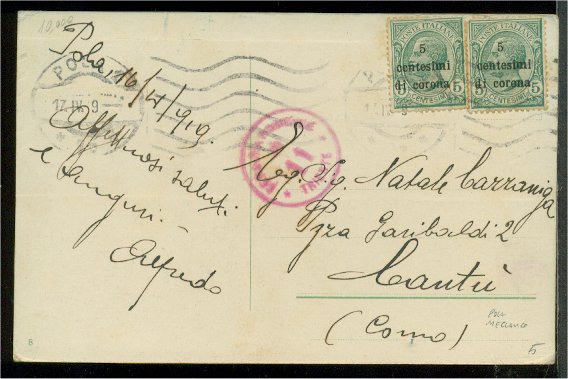 10,000
Pola, 16/IV/919.
Affettuosi saluti
e auguri.
Alfredo
8
POL
17.IV.9
11
TRIESTE
POSTE ITALIANE
5
centesimi
di corona
5 CENTESIMI 5
POSTE ITALIANE
5
centesimi
di corona
5 CENTESIMI 5
Eg. Sig. Natale Carraniga
Pzza Garibaldi 2
Cantù
(Como)
POLA
MECCANICO
5